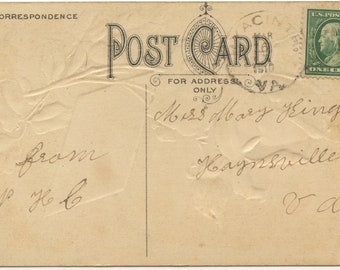 CORRESPONDENCE
POST CARD
FOR ADDRESS
ONLY
ACIA
1910
VA
U.S. POS
ONE CE
from
H C
Miss Mary King
Haynsville
Va